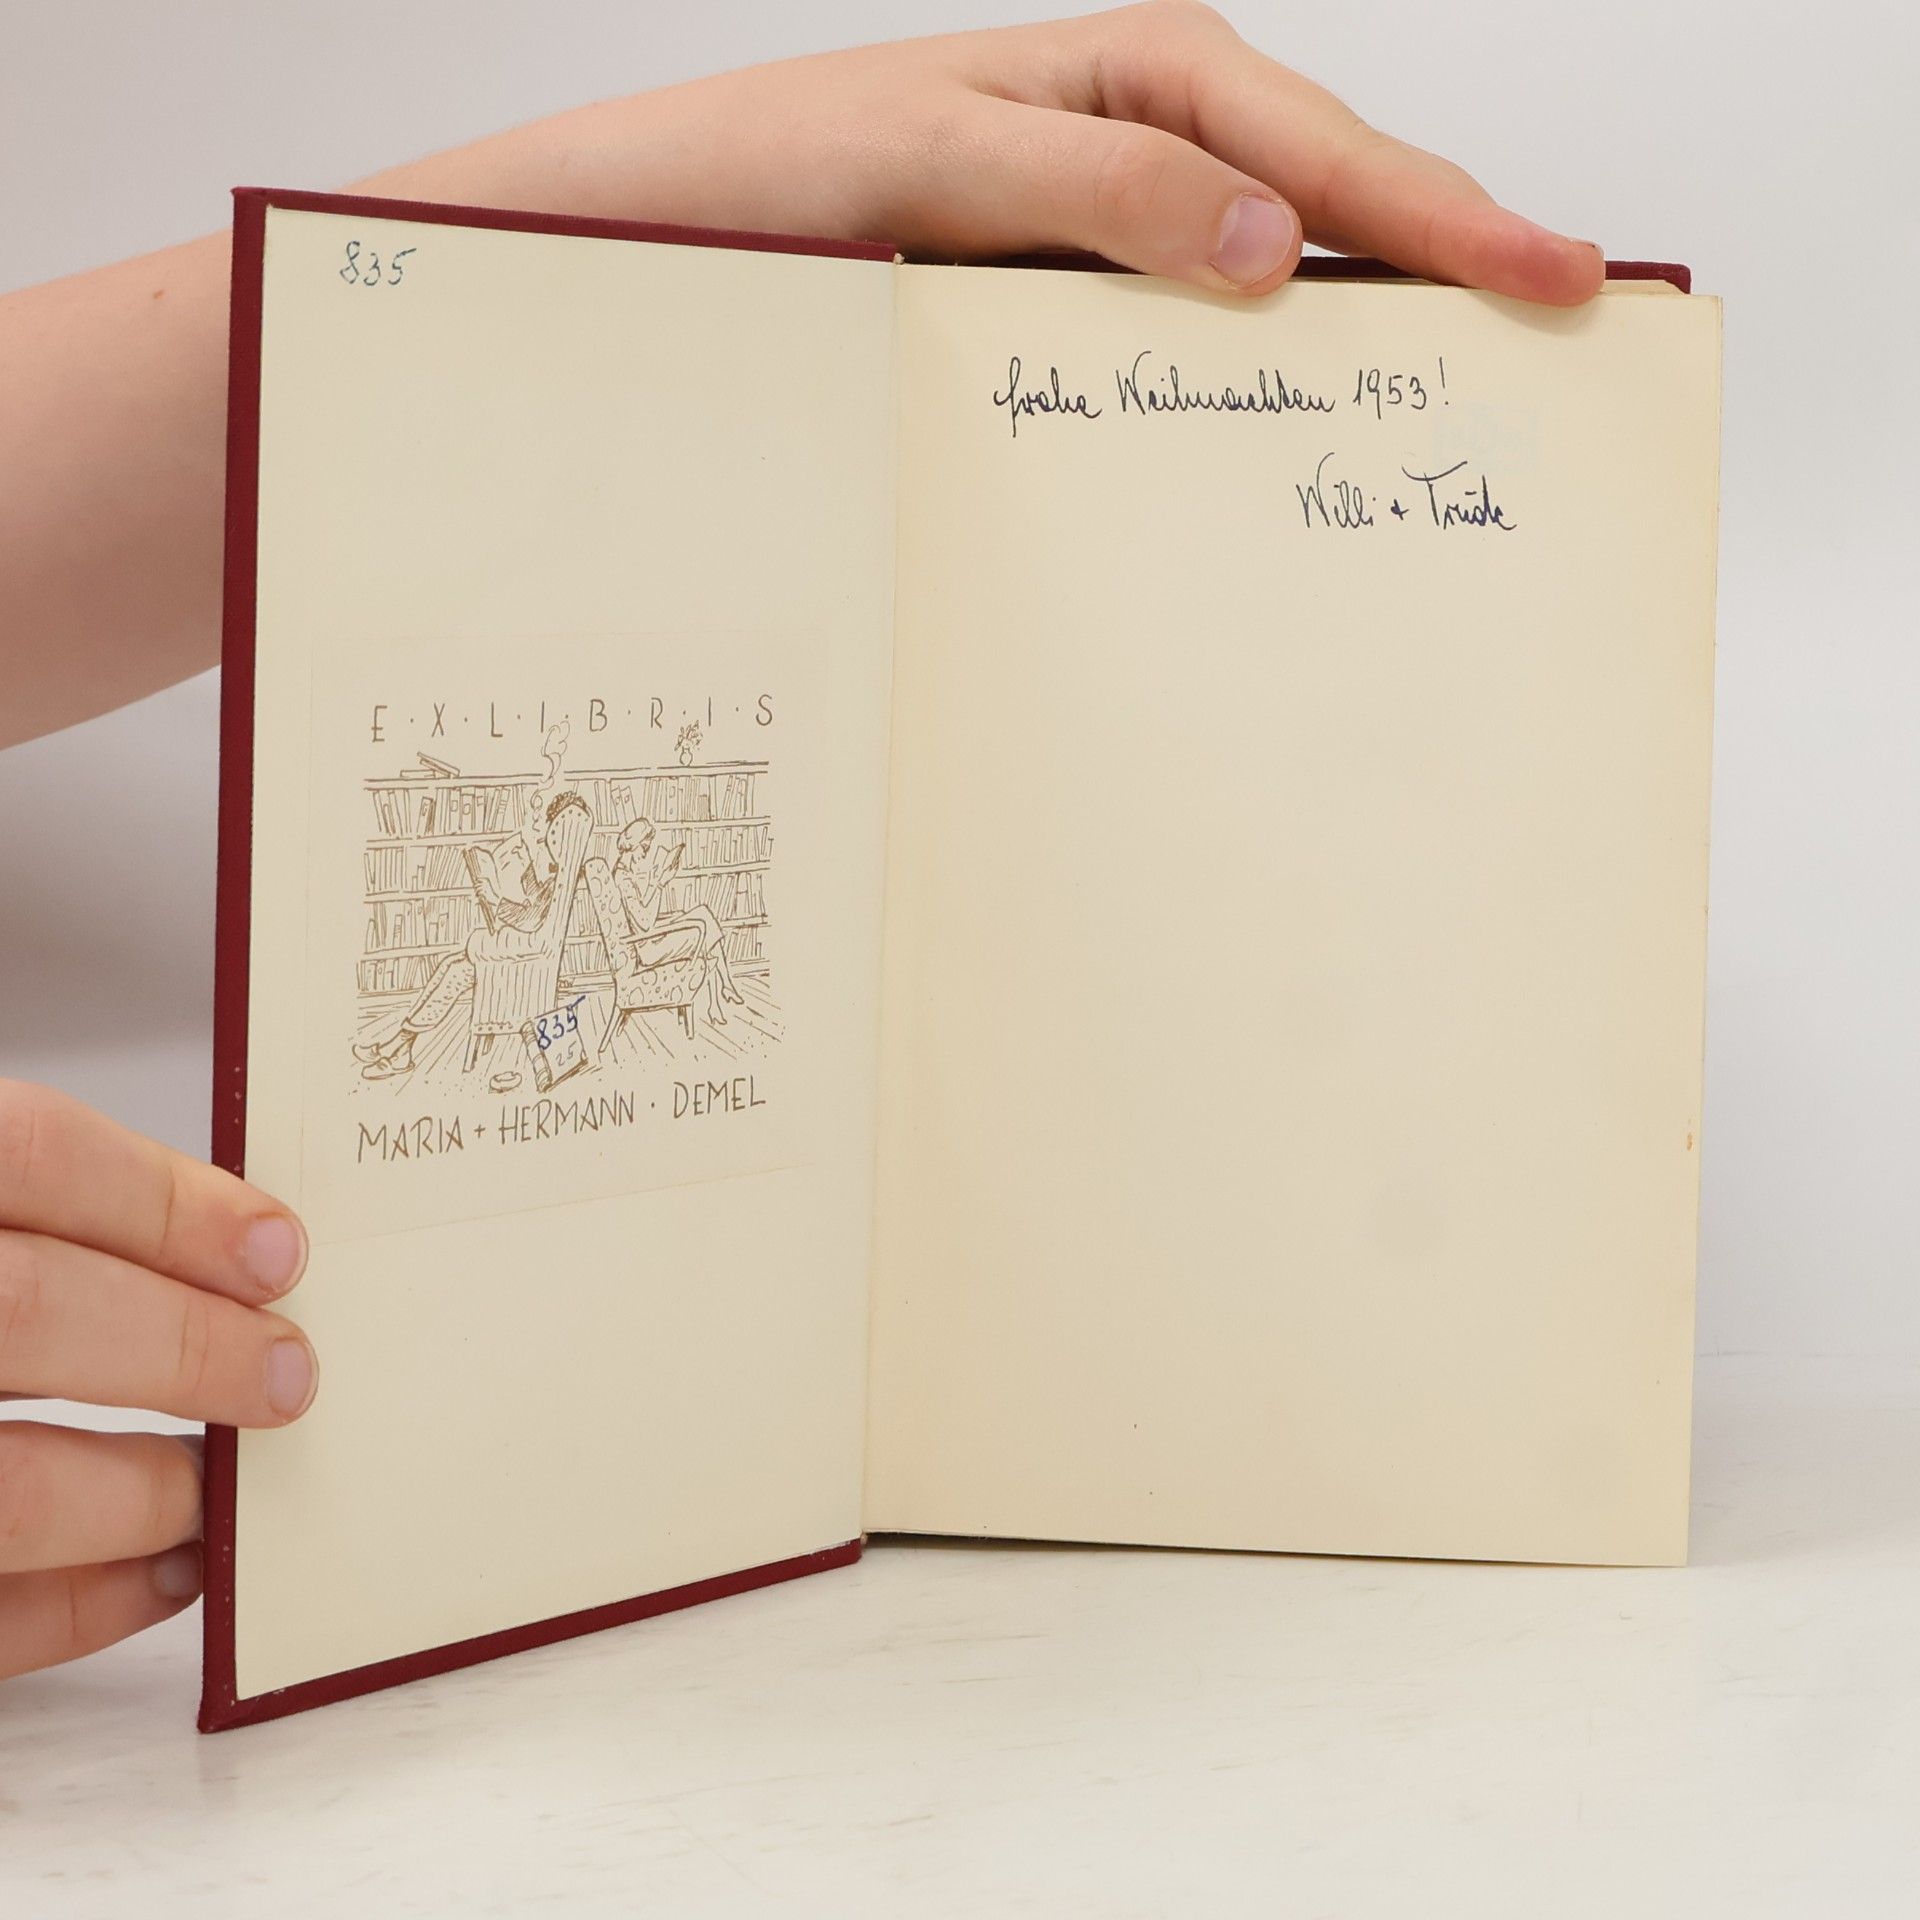 835
E·X·L·I·B·R·I·S
835
25
MARIA + HERMANN · DEMEL
frohe Weihnachten 1953!
Willi + Trude